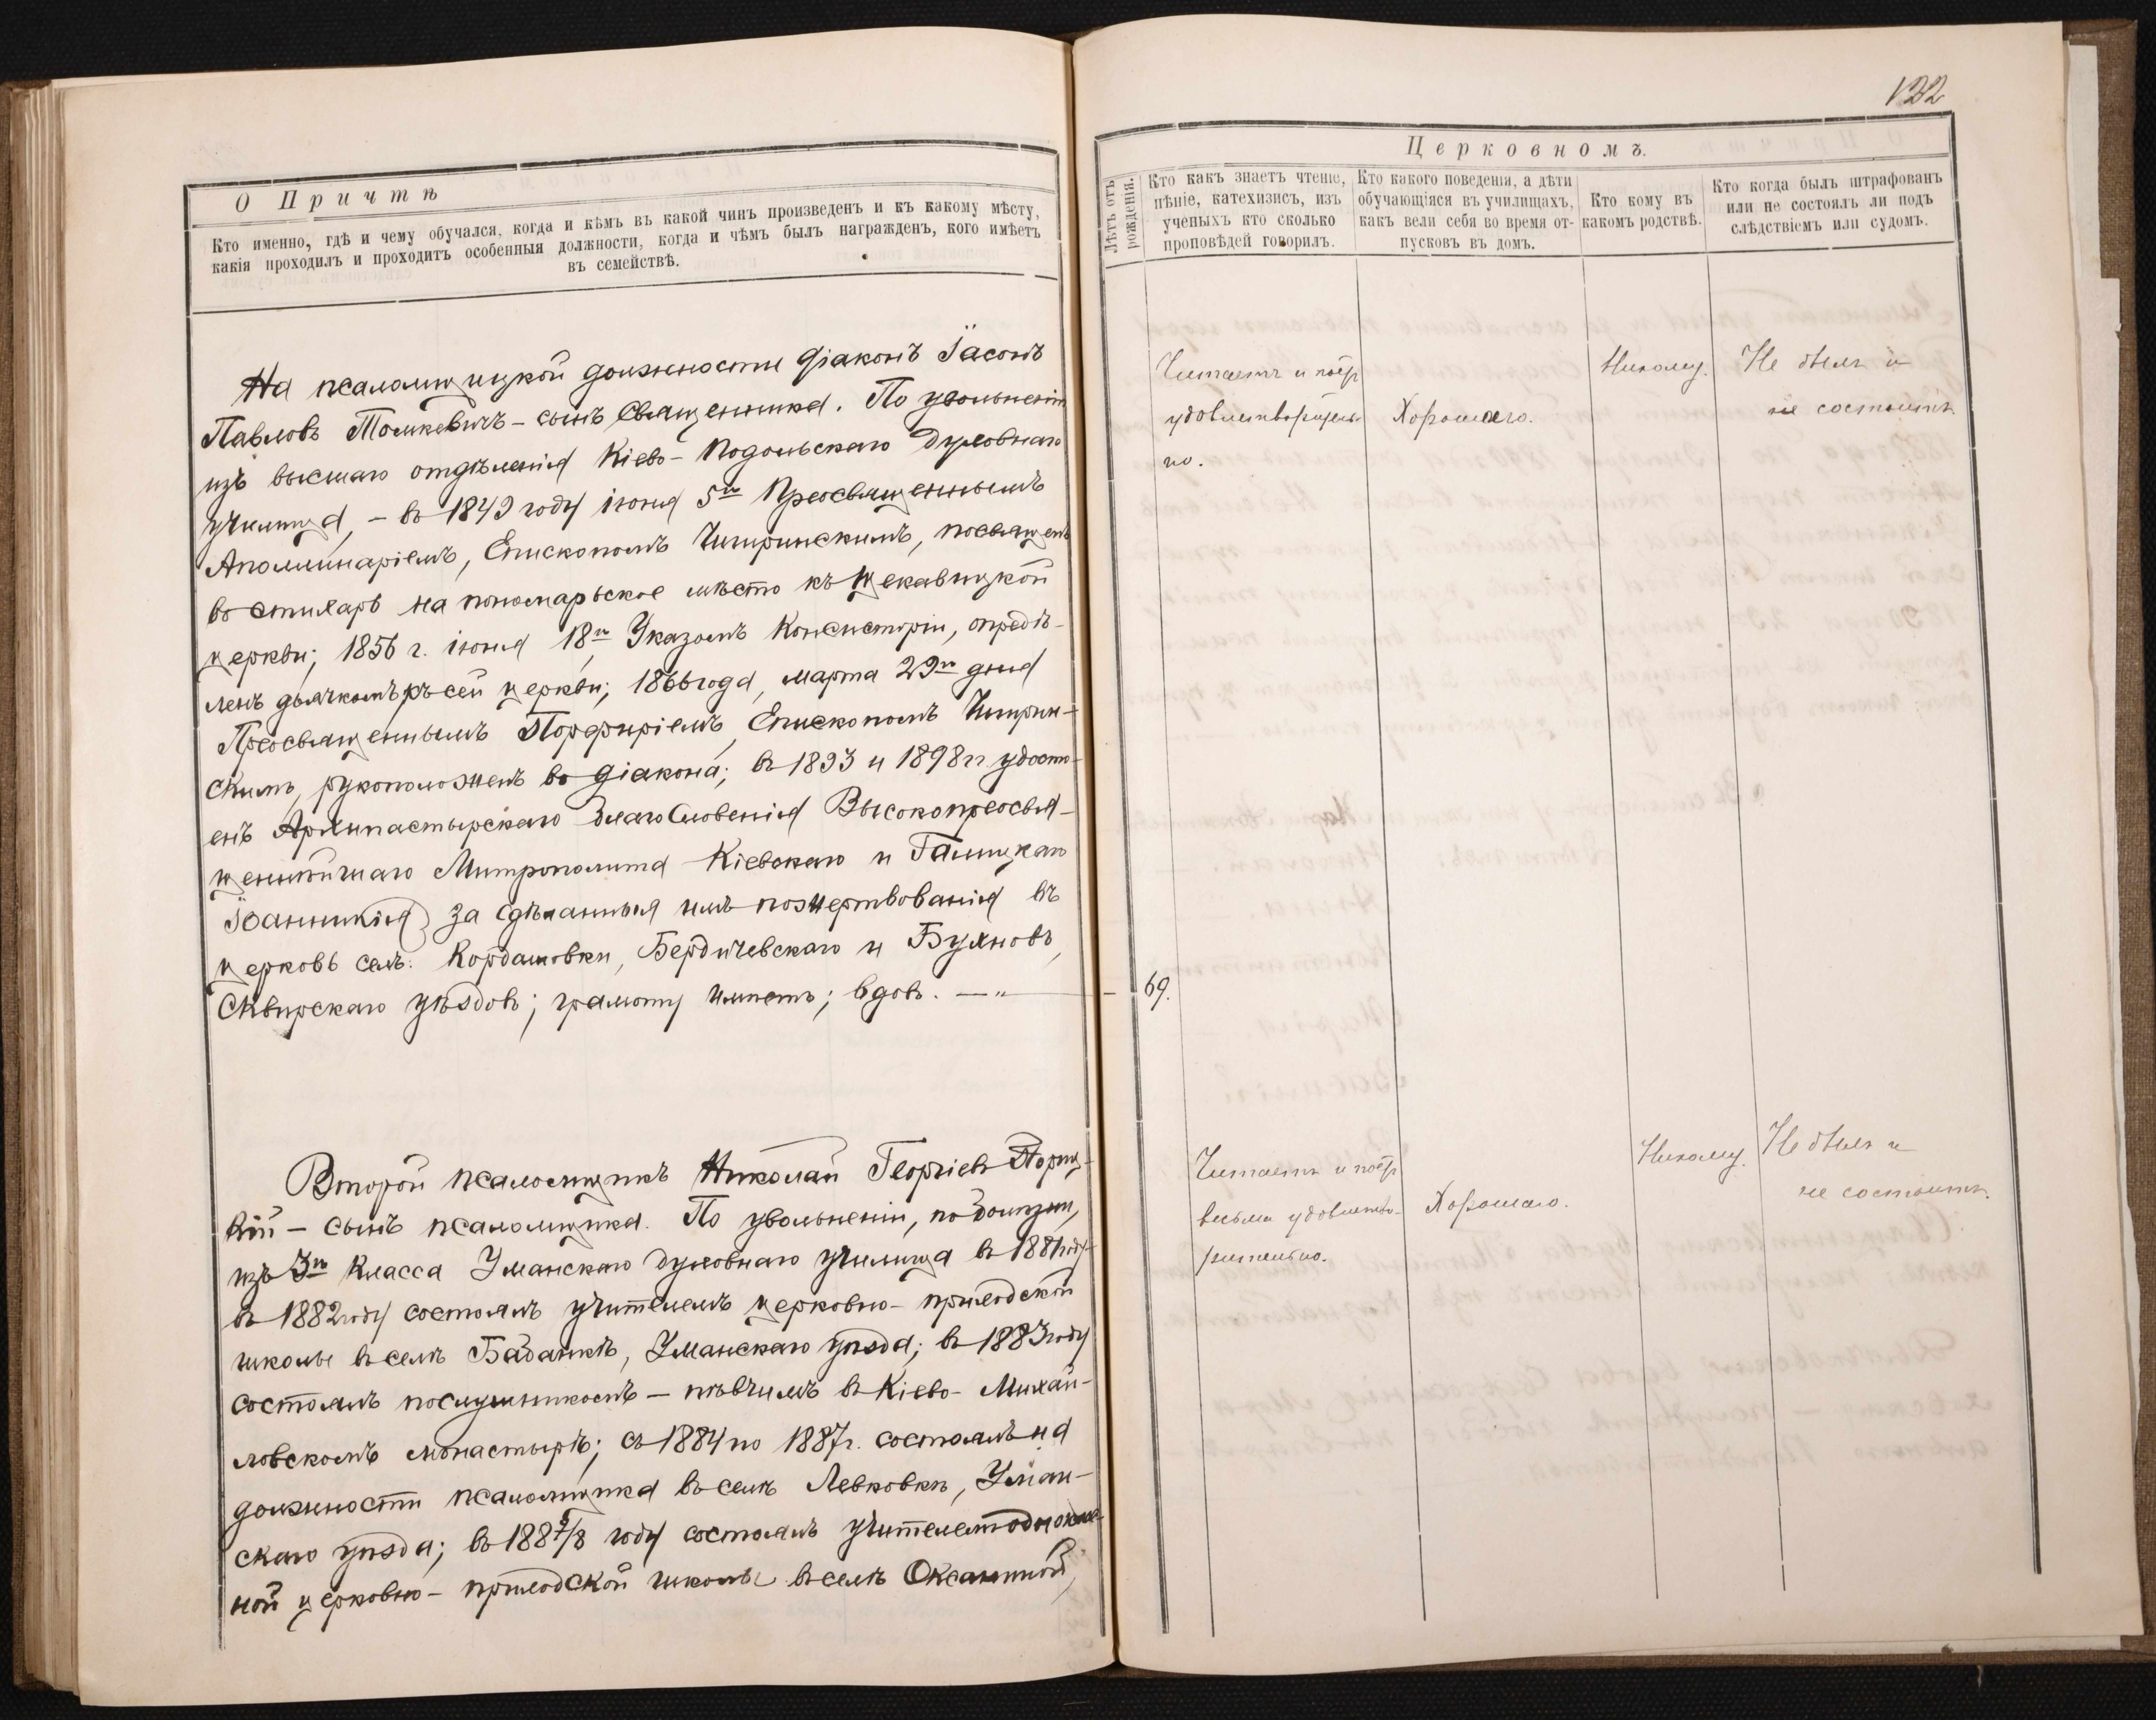 О Причтѣ
Кто именно, гдѣ и чему обучался, когда и кѣмъ въ какой чинъ произведенъ и къ какому мѣсту,
какія проходилъ и проходитъ особенныя должности, когда и чѣмъ былъ награжденъ, кого имѣетъ
въ семействѣ.
На псаломщицкой должности діаконъ Іасонъ
Павловъ Томкевичъ – сынъ священника. По увольненіи
изъ высшаго отдѣленія Кіево-Подольскаго духовнаго
училища, – въ 1849 году іюня 5го Преосвященнымъ
Аполлинаріемъ, Епископомъ Чигринскимъ, посвященъ
въ стихарь на пономарьское мѣсто къ Щекавицкой
церкви; 1856 г. іюня 18го Указомъ Консисторіи, опредѣ-
ленъ дьячкомъ къ сей церкви; 1866 года, марта 29го дня
Преосвященнымъ Порфиріемъ, Епископомъ Чигрин-
скимъ, рукоположенъ во діакона; въ 1893 и 1898 гг. удосто-
енъ Архипастырскаго благословенія Высокопреосвя-
щеннѣйшаго Митрополита Кіевскаго и Галицкаго
Іоанникія за сдѣланныя имъ пожертвованія въ
церковь селъ: Кордашовки, Бердичевскаго и Бухновъ,
Сквирскаго уѣздовъ; грамоту имѣетъ; вдовъ. –„–
Второй псаломщикъ Николай Георгіевъ
кій – сынъ псаломщика. По увольненіи, по болѣзни,
изъ 3го класса Уманскаго духовнаго училища въ 1881 году
въ 1882 году состоялъ учителемъ церковно-приходской
школы въ селѣ Бабанкѣ, Уманскаго уѣзда; въ 1883 году
состоялъ послушникомъ – пѣвчимъ въ Кіево-Михай-
ловскомъ монастырѣ; съ 1884 по 1887 г. состоялъ на
должности псаломщика въ селѣ Левковкѣ, Уман-
скаго уѣзда; въ 1887/8 году состоялъ учителемъ одноклас-
ной церковно-приходской школы въ селѣ Оксаниной,
122
Церковномъ.
Лѣтъ отъ рожденія.
Кто какъ знаетъ чтеніе,
пѣніе, катехизисъ, изъ
ученыхъ кто сколько
проповѣдей говорилъ.
Кто какого поведенія, а дѣти
обучающіяся въ училищахъ,
какъ вели себя во время от-
пусковъ въ домъ.
Кто кому въ
какомъ родствѣ.
Кто когда былъ штрафованъ
или не состоялъ ли подъ
слѣдствіемъ или судомъ.
Читаетъ и поётъ
удовлетворитель-
но.
Хорошаго.
Никому.
Не былъ и
не состоитъ.
69.
Читаетъ и поётъ
весьма удовлетво-
рительно.
Хорошаго.
Никому.
Не былъ и
не состоитъ.